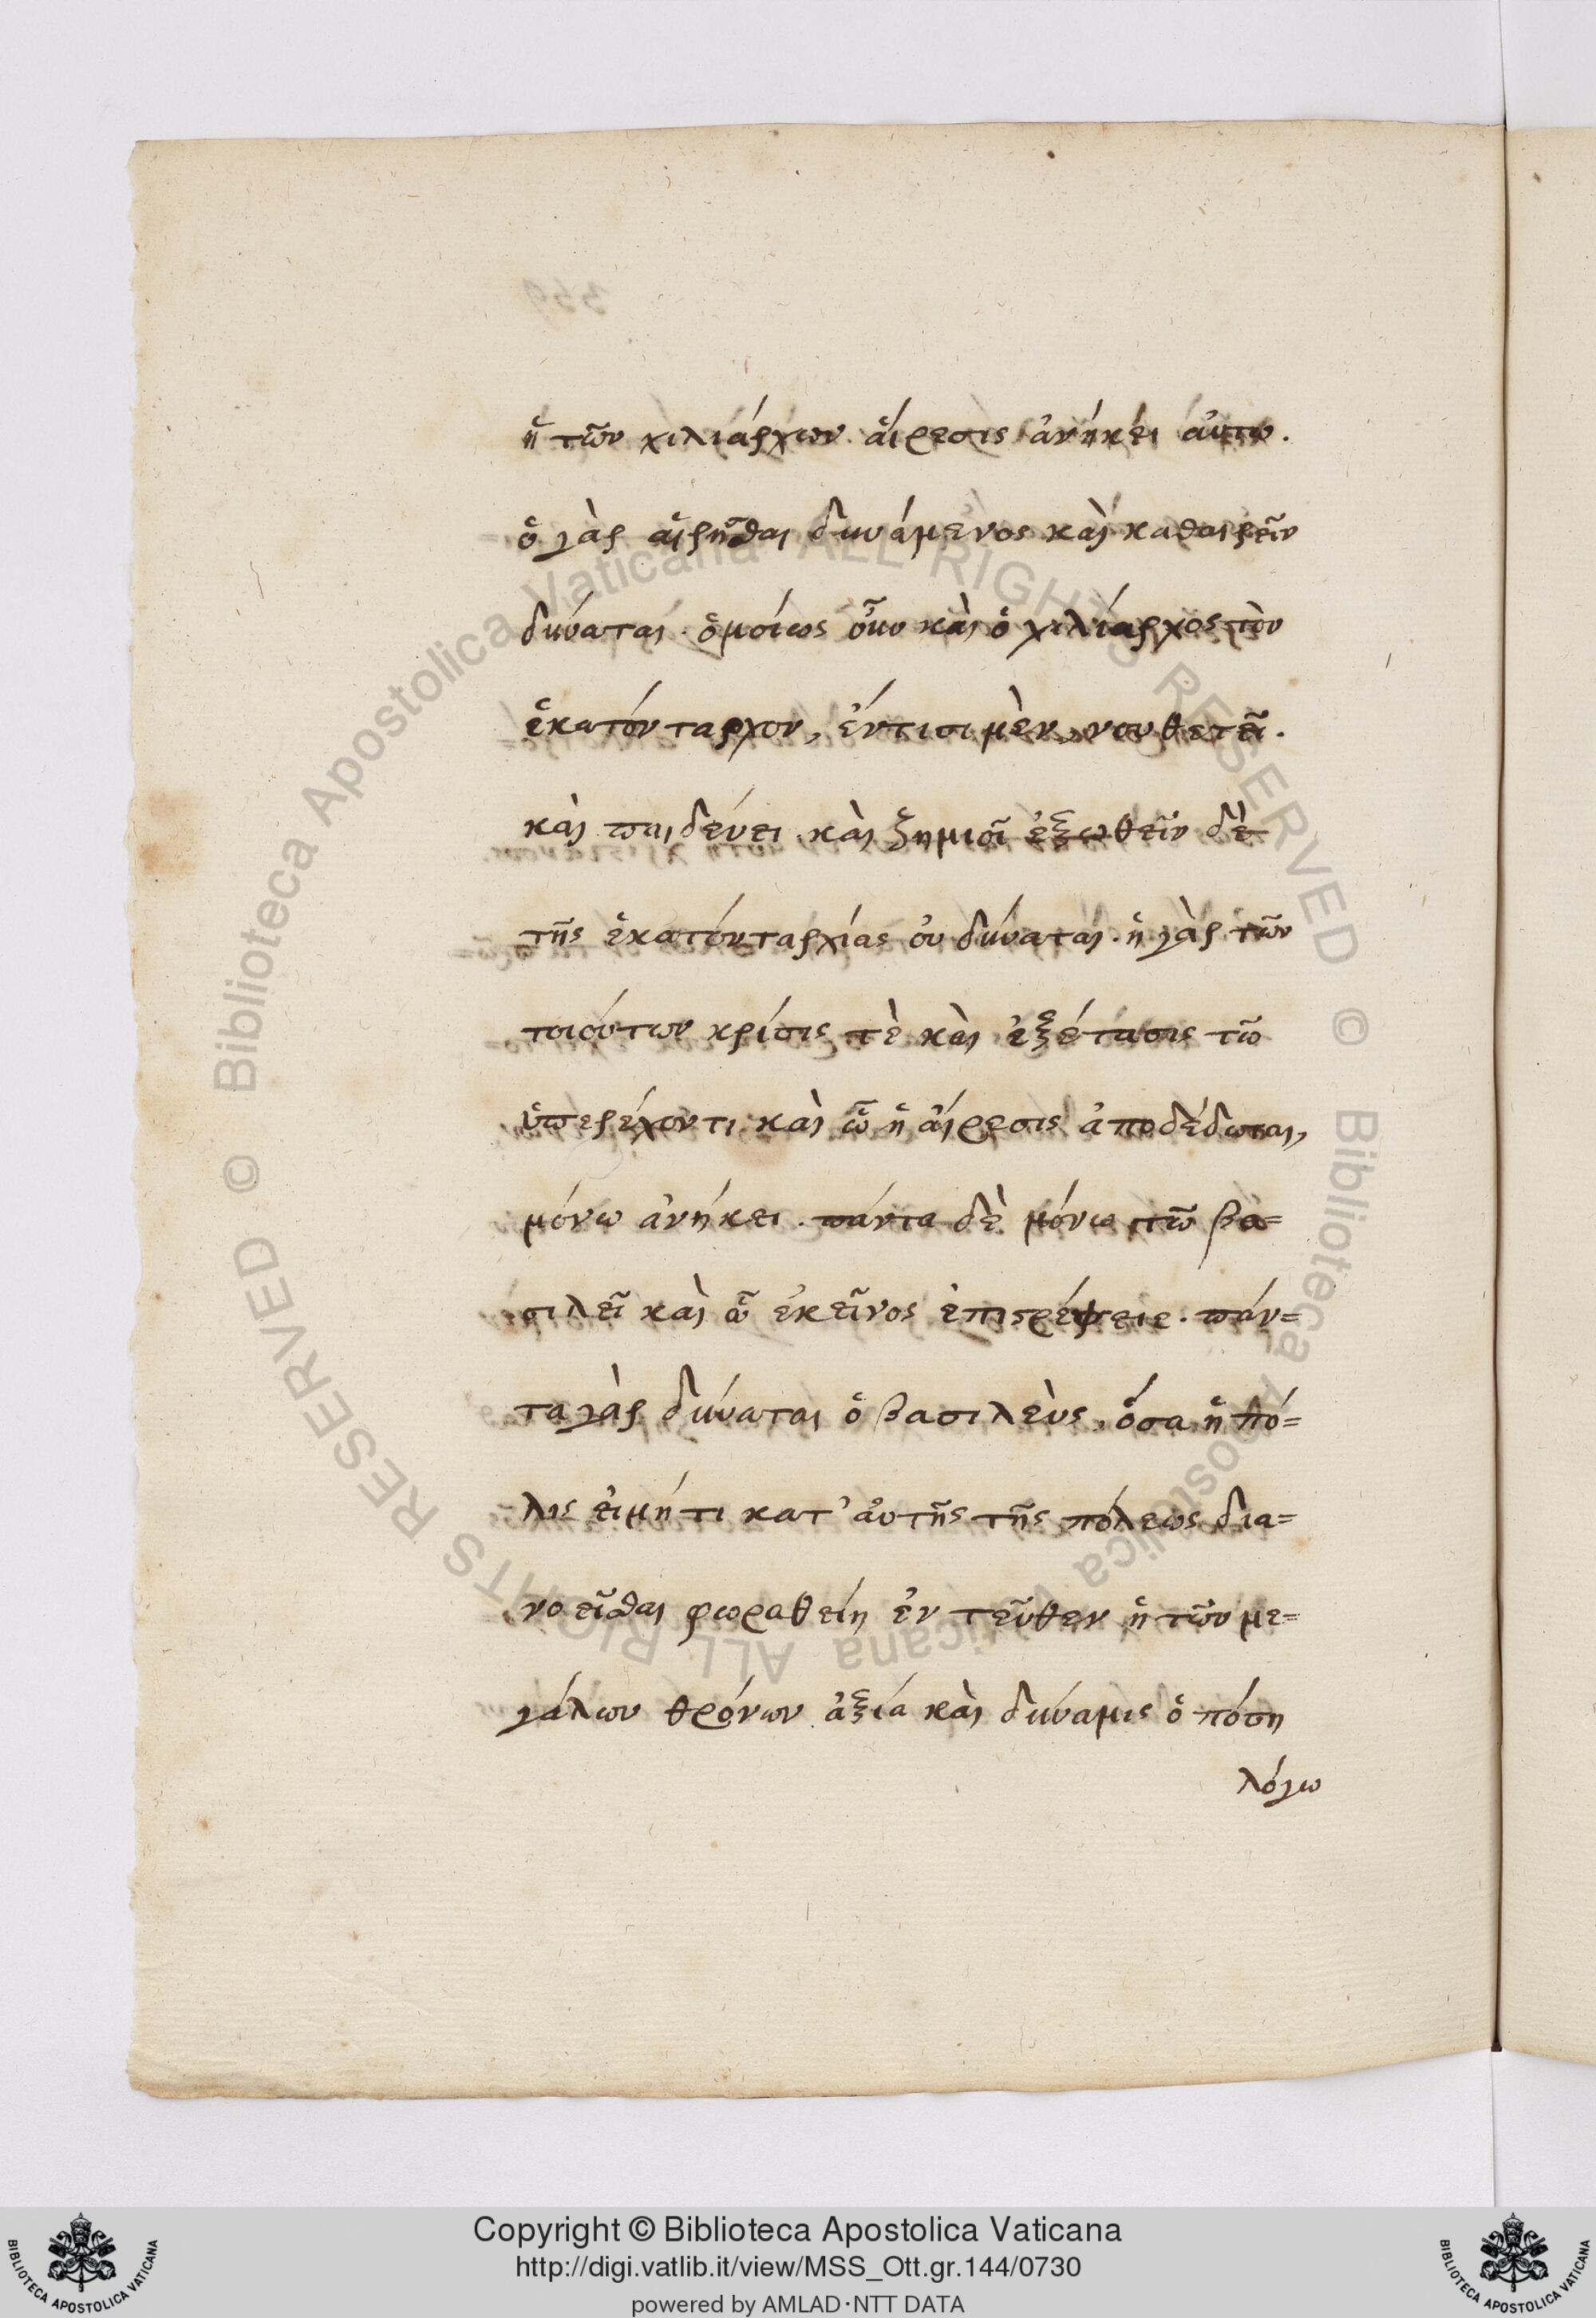 ἡ τῶν χιλιάρχων αἵρεσις ἀνήκει αὐτω.
ὁ γὰρ αἱρῆσθαι δυνάμενος καὶ καθαιρεῖν
δύναται. ὁμοίως οὖν καὶ ὁ χιλίαρχος τὸν
ἑκατόνταρχον, ἐντισι μὲν, νουθετεῖ.
καὶ παιδεύει καὶ ζημιοῖ ἐξωθεῖν δὲ
τῆς ἑκατονταρχίας οὐ δύναται. ἡ γὰρ τῶν
τοιούτων κρίσις τὲ καὶ ἐξέτασις τῶ
ὑπερέχοντι καὶ ὧ ἡ αἵρεσις ἀποδέδωται,
μόνω ἀνήκει. πάντα δὲ μόνω τῶ βα=
σιλεῖ καὶ ὧ ἐκεῖνος ἐπιτρέψειε. πάν=
τα γὰρ δύναται ὁ βασιλεὺς, ὅσα ἡ πό=
λις εἰμήτι κατ' αὐτῆς τῆς πόλεως δια=
νοεῖσθαι φωραθείη ἐν τεῦθεν ἡ τῶν με=
γάλων θρόνων ἀξία καὶ δύναμις ὁπόση
λόγω
© Biblioteca Apostolica Vaticana ALL RIGHTS RESERVED
© Biblioteca Apostolica Vaticana ALL RIGHTS RESERVED
Copyright © Biblioteca Apostolica Vaticana
http://digi.vatlib.it/view/MSS_Ott.gr.144/0730
powered by AMLAD·NTT DATA
BIBLIOTECA APOSTOLICA VATICANA
BIBLIOTECA APOSTOLICA VATICANA